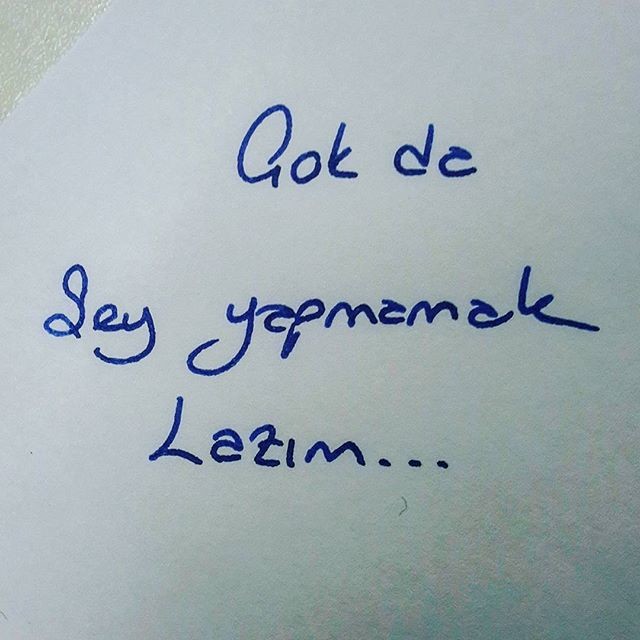 Çok da
Şey yapmamak
Lazım...